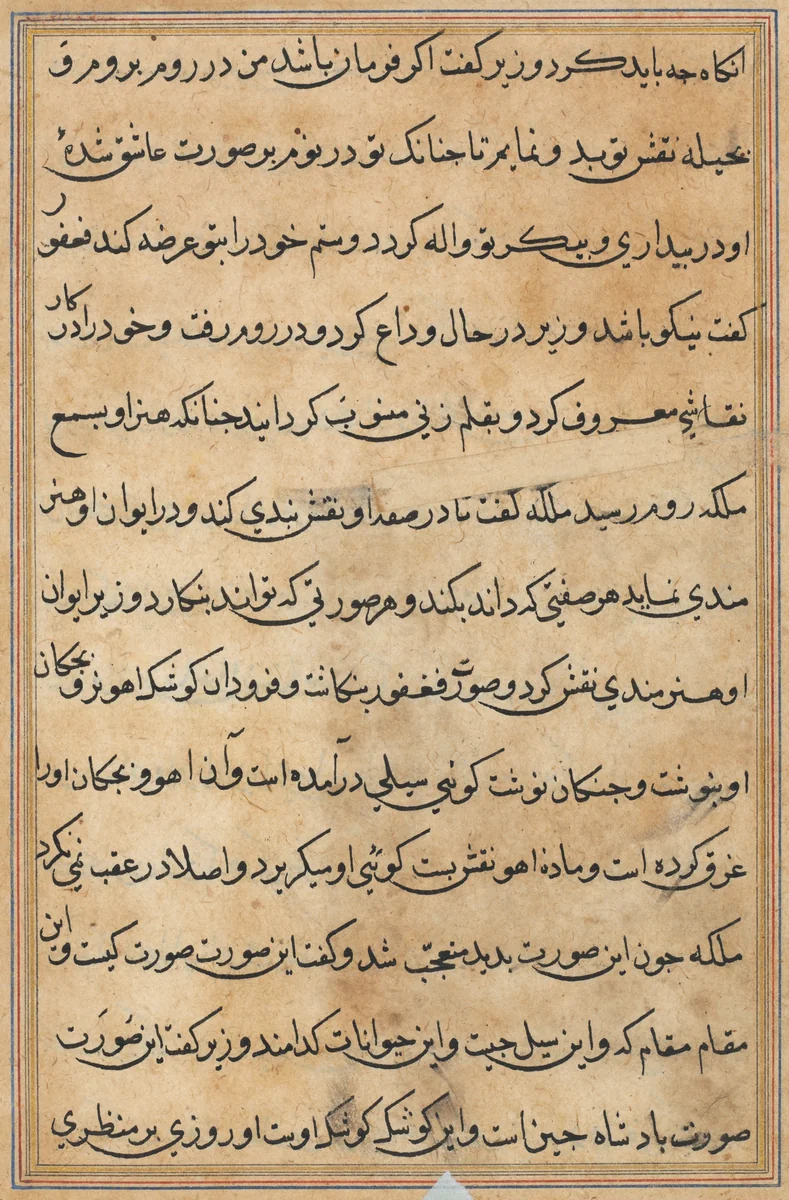 انکاه جه باید کرد وزیر کفت اکر فرمان باشد من در روم بروم و
بحیله نقش تو بدو نمایم تا جنانک تو در نوم بر صورت عاشق شدهٔ
او در بیداری و بیکر تو واله کردد وستم خود را بتو عرضه کند فغفور
کفت نیکو باشد وزیر در حال وداع کرد و در روم رفت و خود را در کار
نقاشی معروف کرد و بقلم زنی منسوب کردانید جنانکه هنر او بسمع
ملکه روم رسید ملکه کفت تا در صفه او نقش بندی کند و در ایوان او هنر
مندی نماید هر صفتی که داند بکند و هر صورتی که تواند بنکارد وزیر ایوان
او هنرمندی نقش کرد و صورت فغفور بنکاشت و فرودان کوشک اهو نر و بجکان
او بنوشت و جنکان نوشت کوئی سیلی درآمده است و آن اهو و بجکان او را
غرق کرده است و ماده اهو نقش بست کوئی او میکریزد و اصلا در عقب نمی نکرد
ملکه جون این صورت بدید متعجب شد و کفت این صورت صورت کیست و این
مقام مقام که و این سیل جیست و این حیوانات کدامند وزیر کفت این صورت
صورت بادشاه جین است و این کوشک کوشک اوست او روزی بر منظری